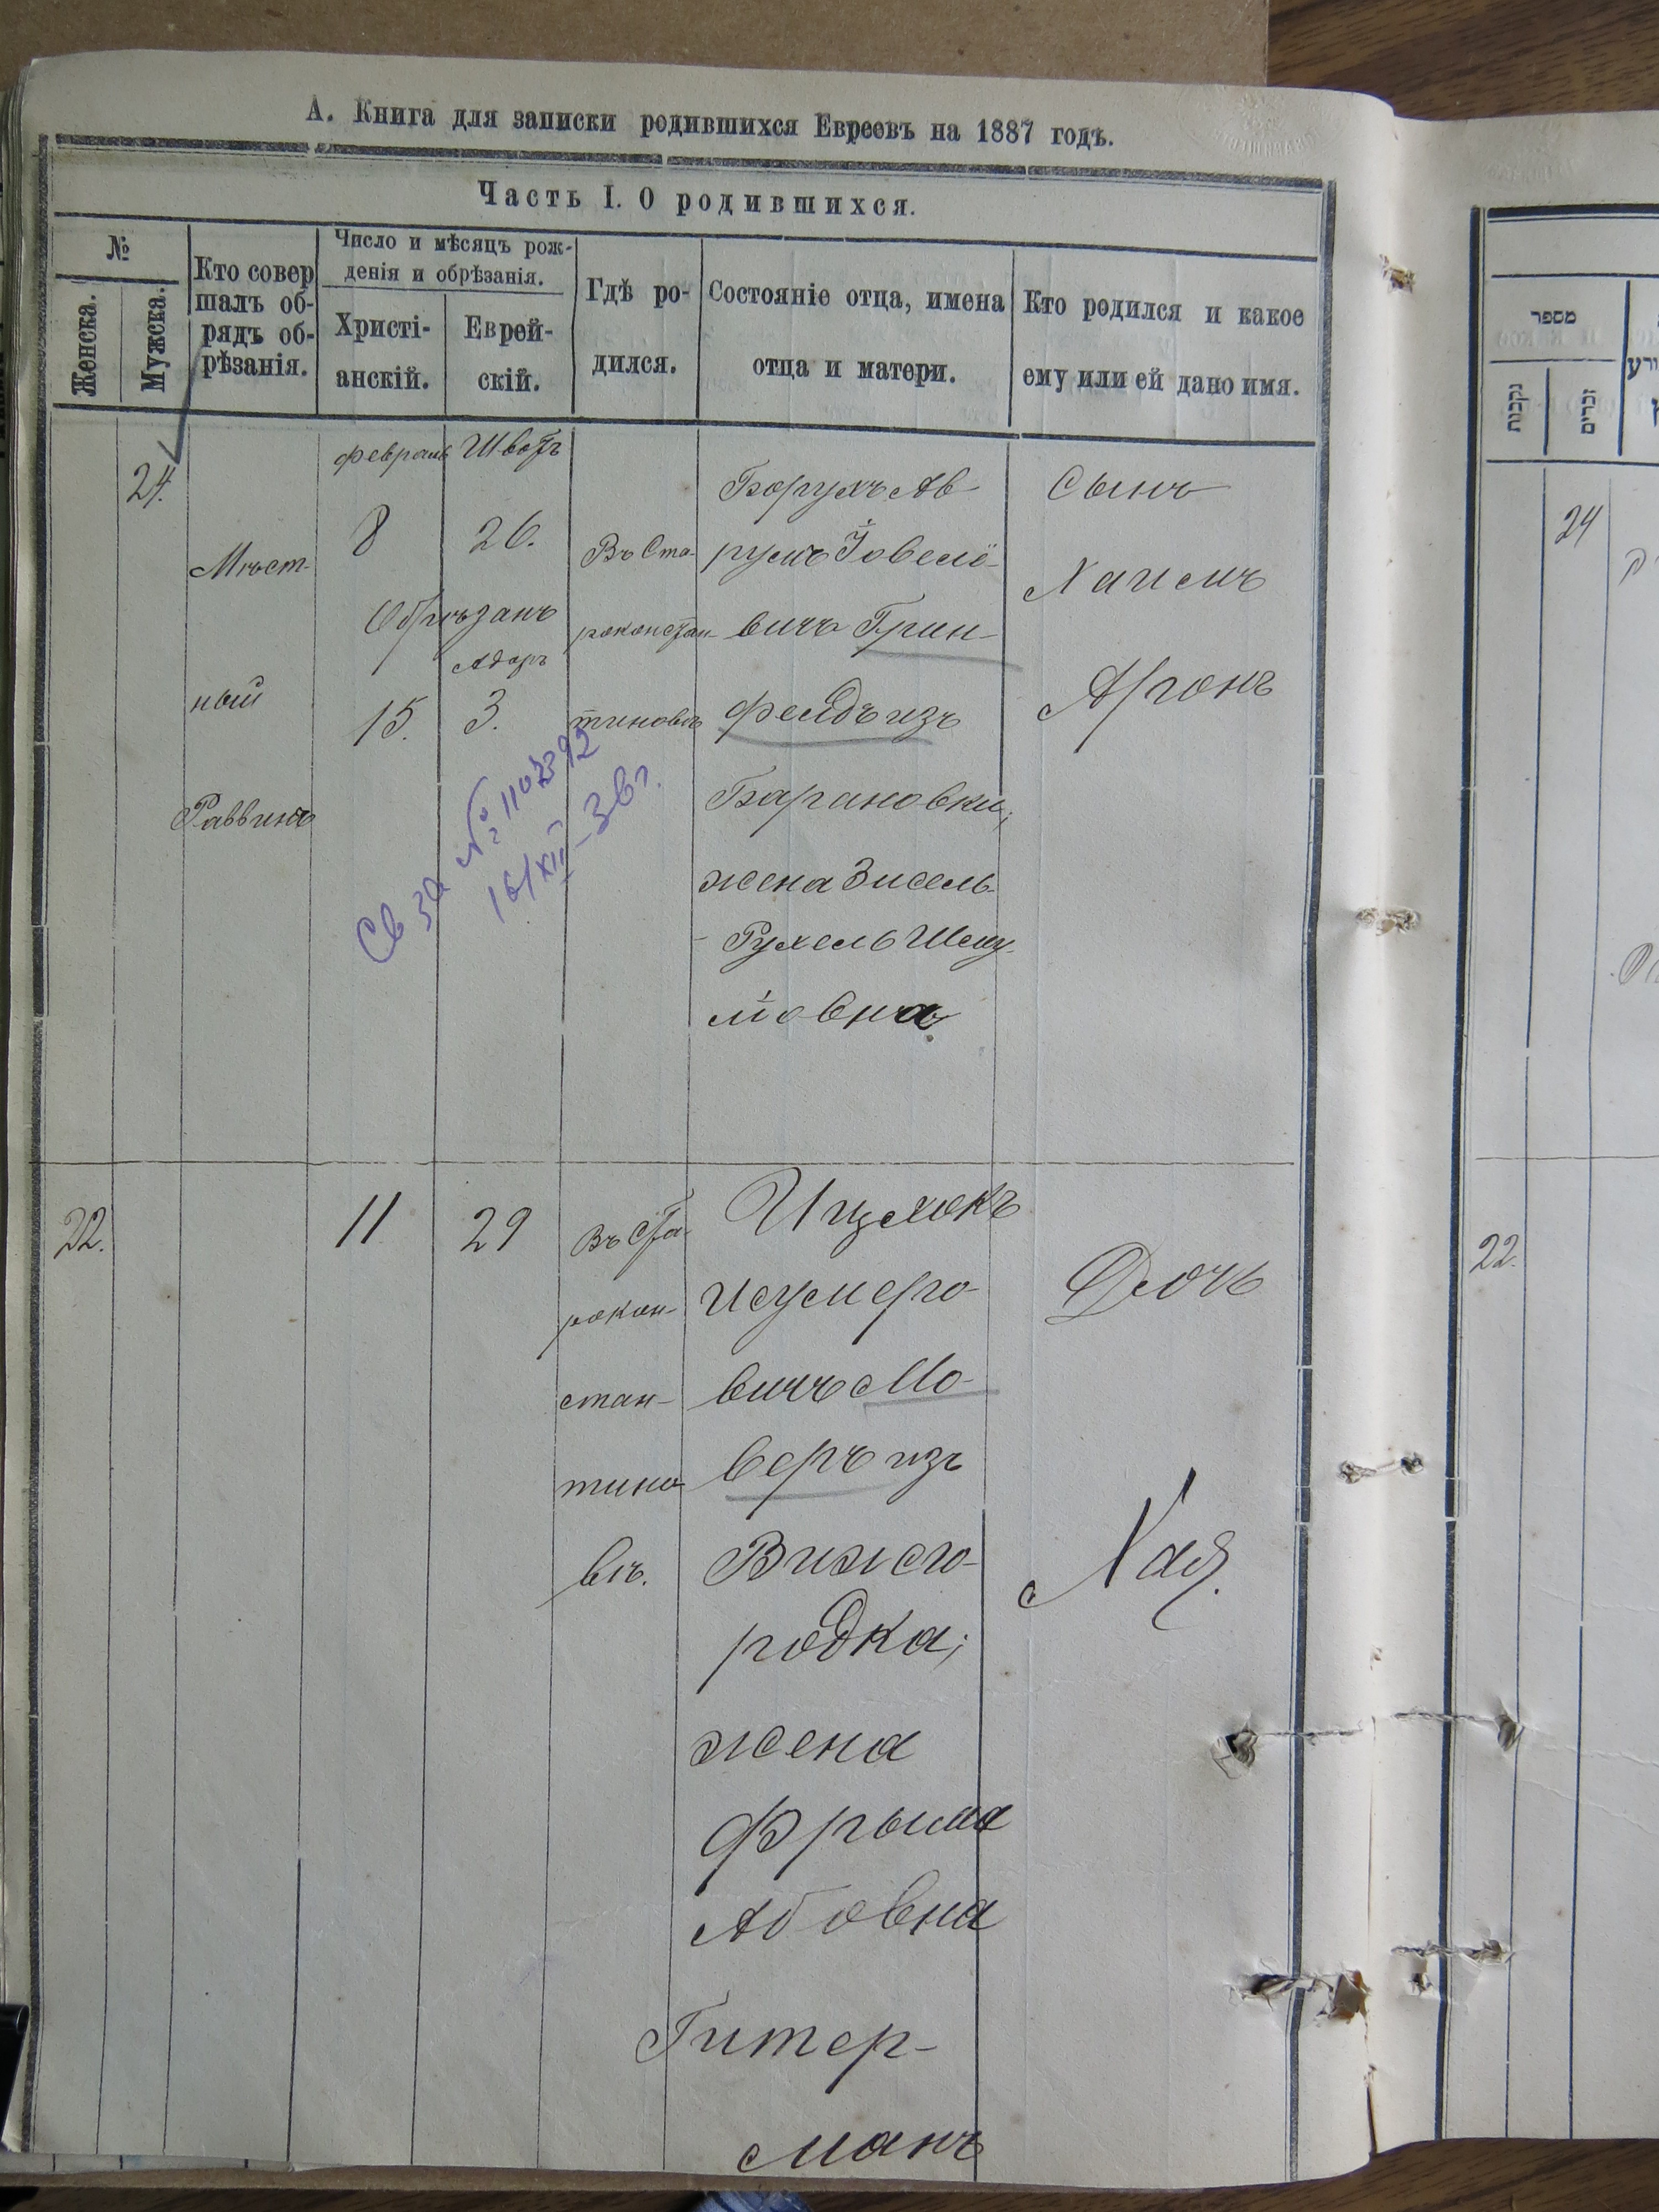 А. Книга для записки родившихся Евреевъ на 1887 годъ.
Часть I. О родившихся.
№
Женска.
Мужска.
Кто совер
шалъ об-
рядъ об-
рѣзанія.
Число и мѣсяцъ рож-
денія и обрѣзанія.
Христі-
анскій.
Еврей-
скій.
Гдѣ ро-
дился.
Состояніе отца, имена
отца и матери.
Кто родился и какое
ему или ей дано имя.
24.
Мѣст-
ный
Раввинъ
февраль
8
Обрѣзанъ
15.
Шватъ
26.
Адаръ
3.
Въ Ста-
роконстан-
тиновѣ
Борухъ Ав-
румъ
вичъ Грин-
фельдъ изъ
Барановки;
жена Зисель-
-Рухель Шму-
ловна
Сынъ
Хаимъ
Аронъ
Св за № 1102392
16/XII-36г.
22.
11
29
Въ Ста-
рокон-
стан-
тино-
вѣ.
Ицхокъ
-
вичъ Мо-
веръ изъ
Вижго-
родка;
жена
Фрыма
Абовна
Гитер-
манъ
Дочь
Хая.
מספר
נקבות
זכרים
24
22.